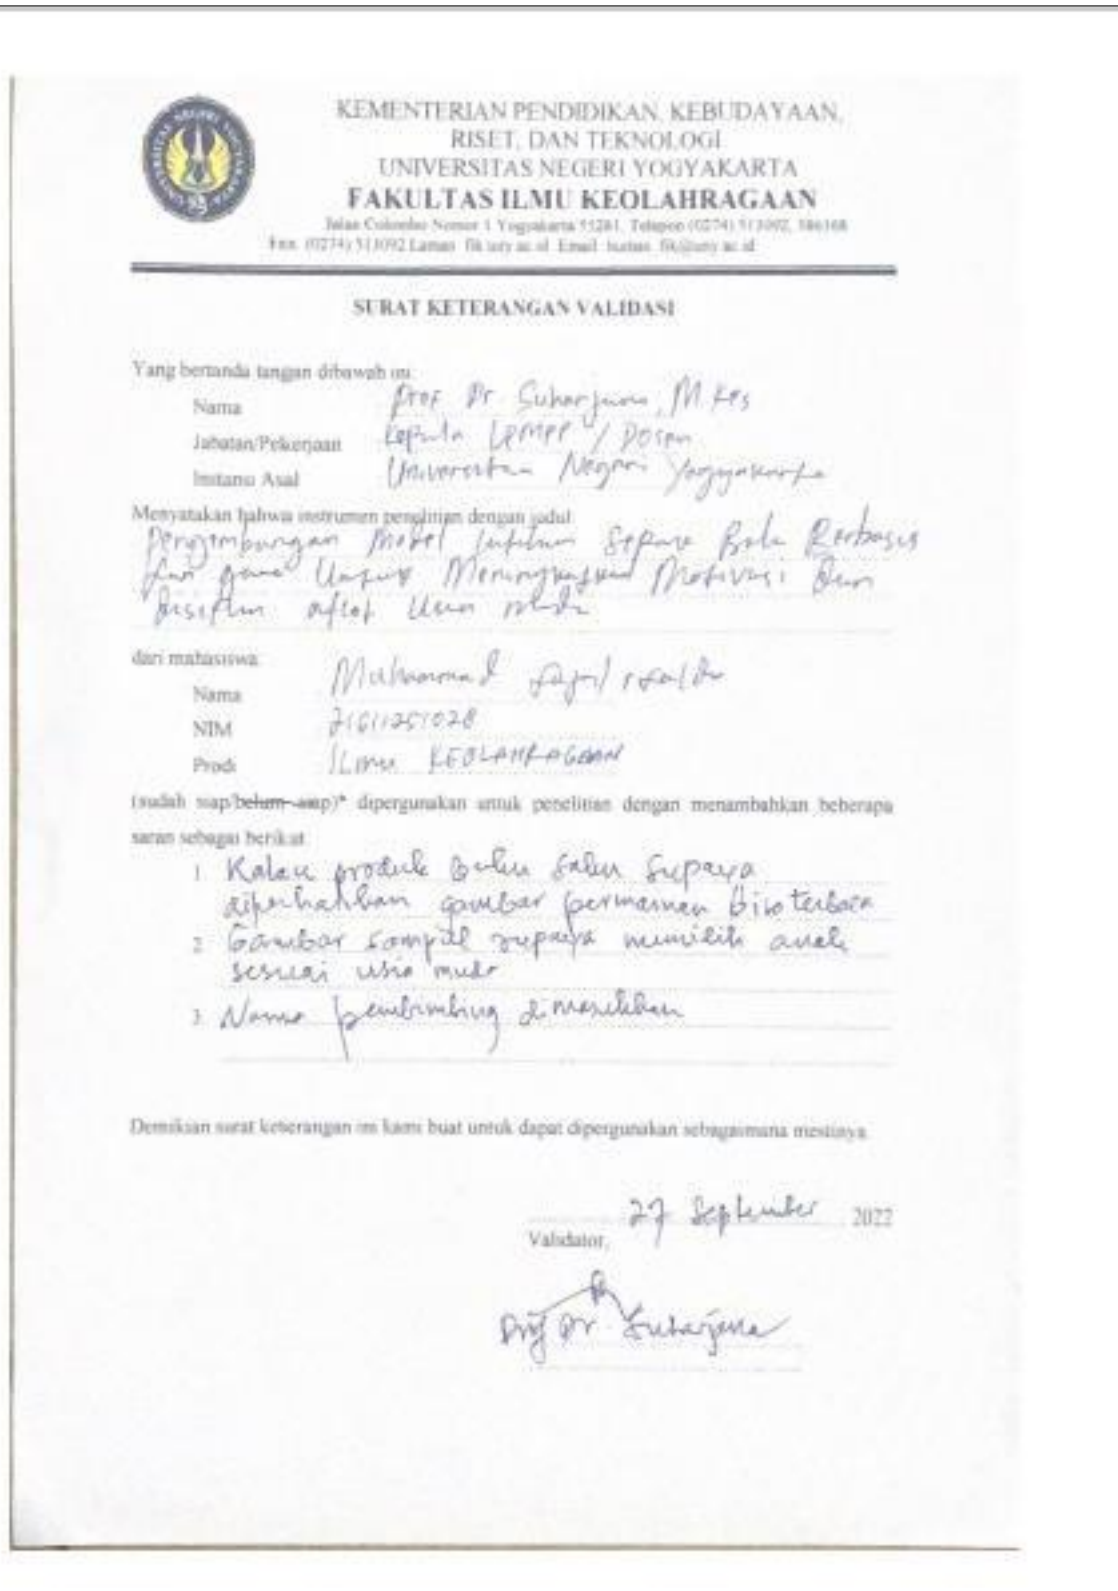 KEMENTERIAN PENDIDIKAN, KEBUDAYAAN,
RISET, DAN TEKNOLOGI
UNIVERSITAS NEGERI YOGYAKARTA
FAKULTAS ILMU KEOLAHRAGAAN
Jalan Colombo Nomor 1 Yogyakarta 55281, Telepon (0274) 513092, 586168
Fax. (0274) 513092 Laman: fik.uny.ac.id Email: humas_fik@uny.ac.id
SURAT KETERANGAN VALIDASI
Yang bertanda tangan dibawah ini
Nama Prof Dr Suharjana, M.Kes
Jabatan/Pekerjaan Kepala LPMPP / Dosen
Instansi Asal Universitas Negeri Yogyakarta
Menyatakan bahwa instrumen penelitian dengan judul
Pengembangan Model Latihan Sepak Bola Berbasis
fun game Untuk Meningkatkan Motivasi Dan
Disiplin atlet Usia muda
dari mahasiswa
Nama Muhammad
NIM 21611251028
Prodi ILmu KEOLAHRAGAAN
(sudah siap/belum siap)* dipergunakan untuk penelitian dengan menambahkan beberapa
saran sebagai berikut
1 Kalau produk buku saku supaya
gambar permainan bisa terbaca
2 Gambar sampul supaya memilih anak
sesuai usia muda
3 Nama pembimbing dimasukkan
Demikian surat keterangan ini kami buat untuk dapat dipergunakan sebagaimana mestinya
27 September 2022
Validator,
Prof Dr. Suharjana